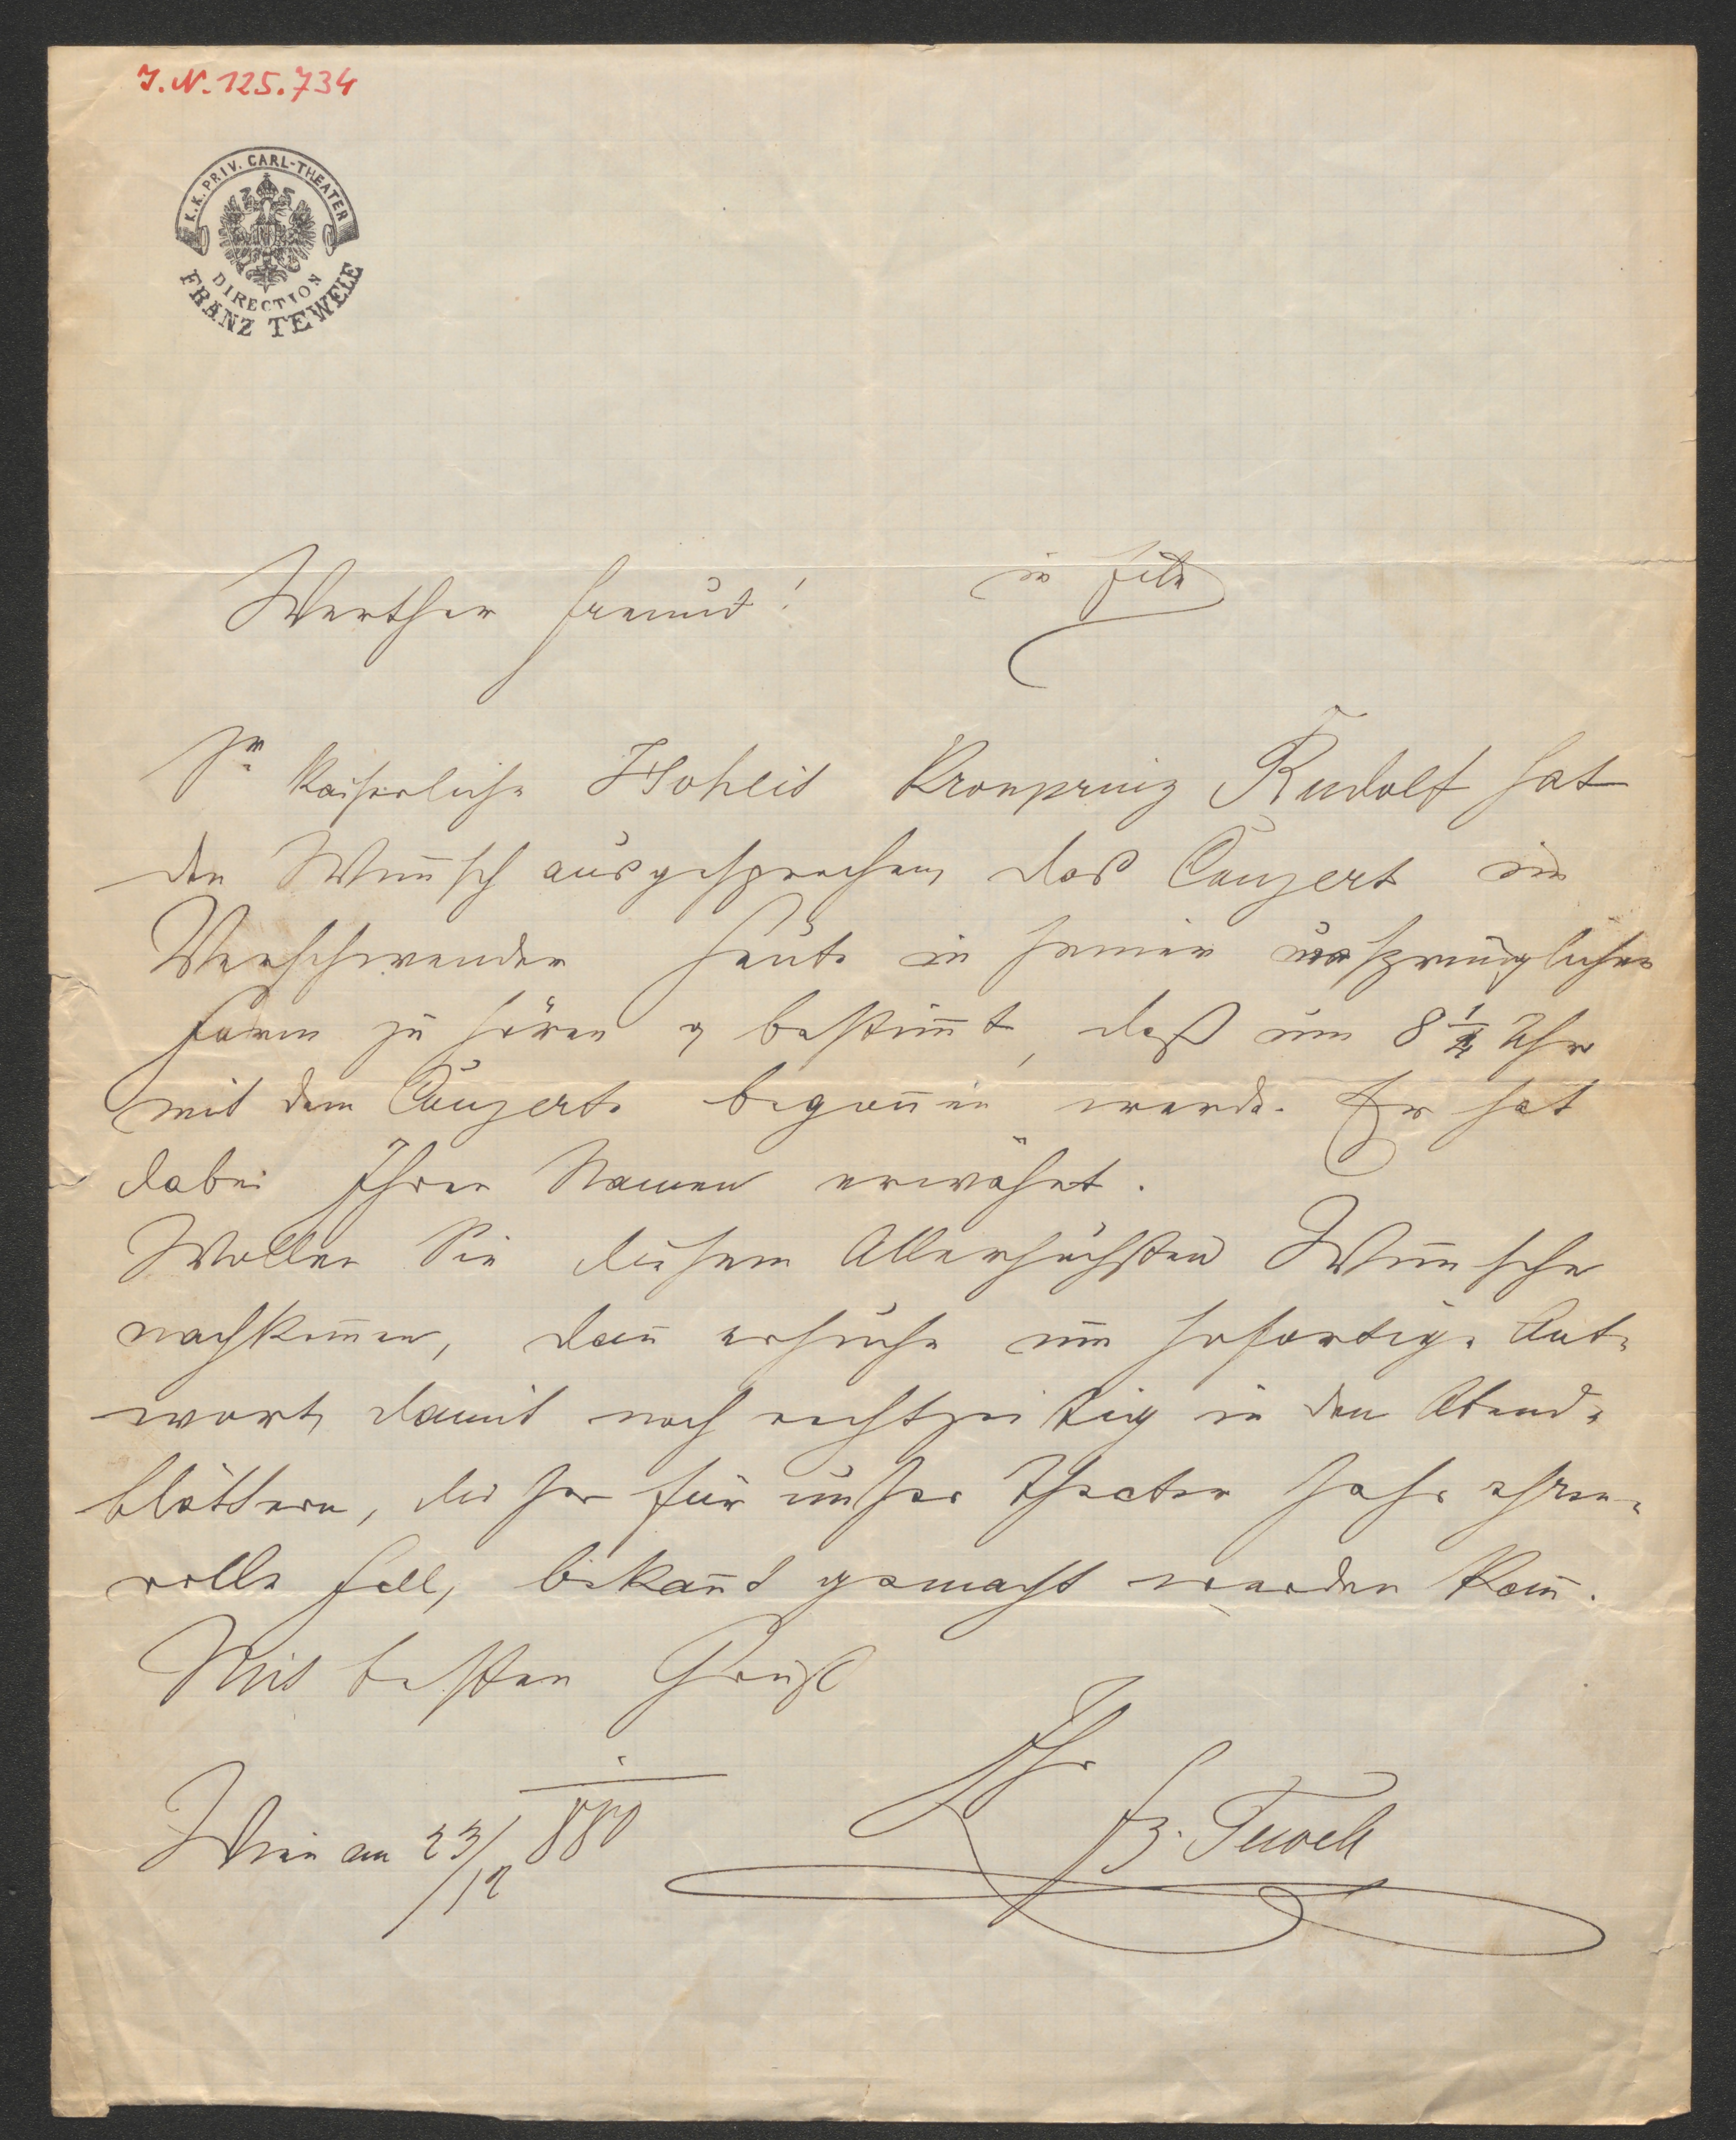 J. N. 125.734
K. K. PRIV. CARL-THEATER
DIRECTION
FRANZ TEWELE
Werther Freund! in Eile
Se kaiserliche Hoheit Kronprinz Rudolf hat
den Wunsch ausgesprochen, das Conzert im
Verschwender heute in seiner ursprünglichen
Form zu hören & bestim̄t, daß um 8 1/4 Uhr
mit dem Conzerte begon̄en werde. Er hat
dabei Ihren Namen erwähnt.
Wollen Sie diesem Allerhöchsten Wunsche
nachkom̄en, dan̄ ersuche um sofortige Ant-
wort, damit noch rechtzeitig in den Abend-
blättern, dieser für unser Theater sehr ehren-
volle Fall, bekan̄t gemacht werden kan̄.
Mit besten Gruß
Ihr
Wien am 23/12 880 Fz. Tewele